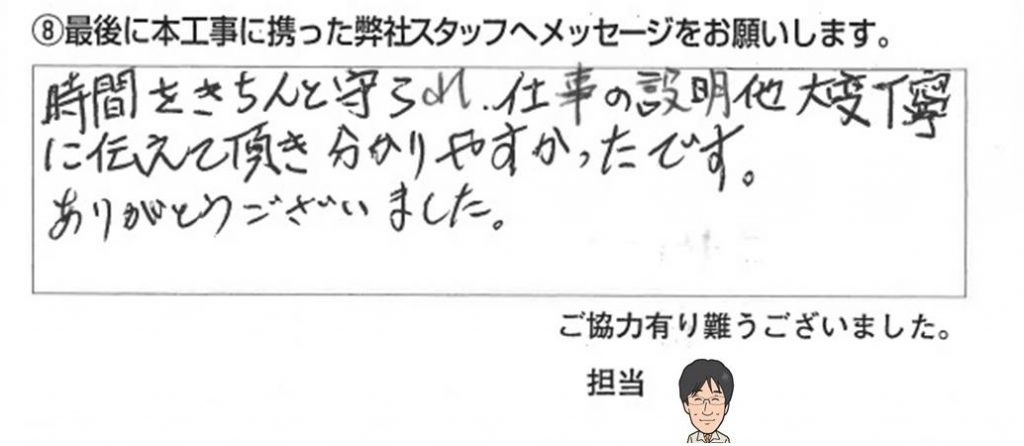 ⑧最後に本工事に携った弊社スタッフへメッセージをお願いします。
時間をきちんと守られ、仕事の説明他大変丁寧
に伝えて頂き分かりやすかったです。
ありがとうございました。
ご協力有り難うございました。
担当